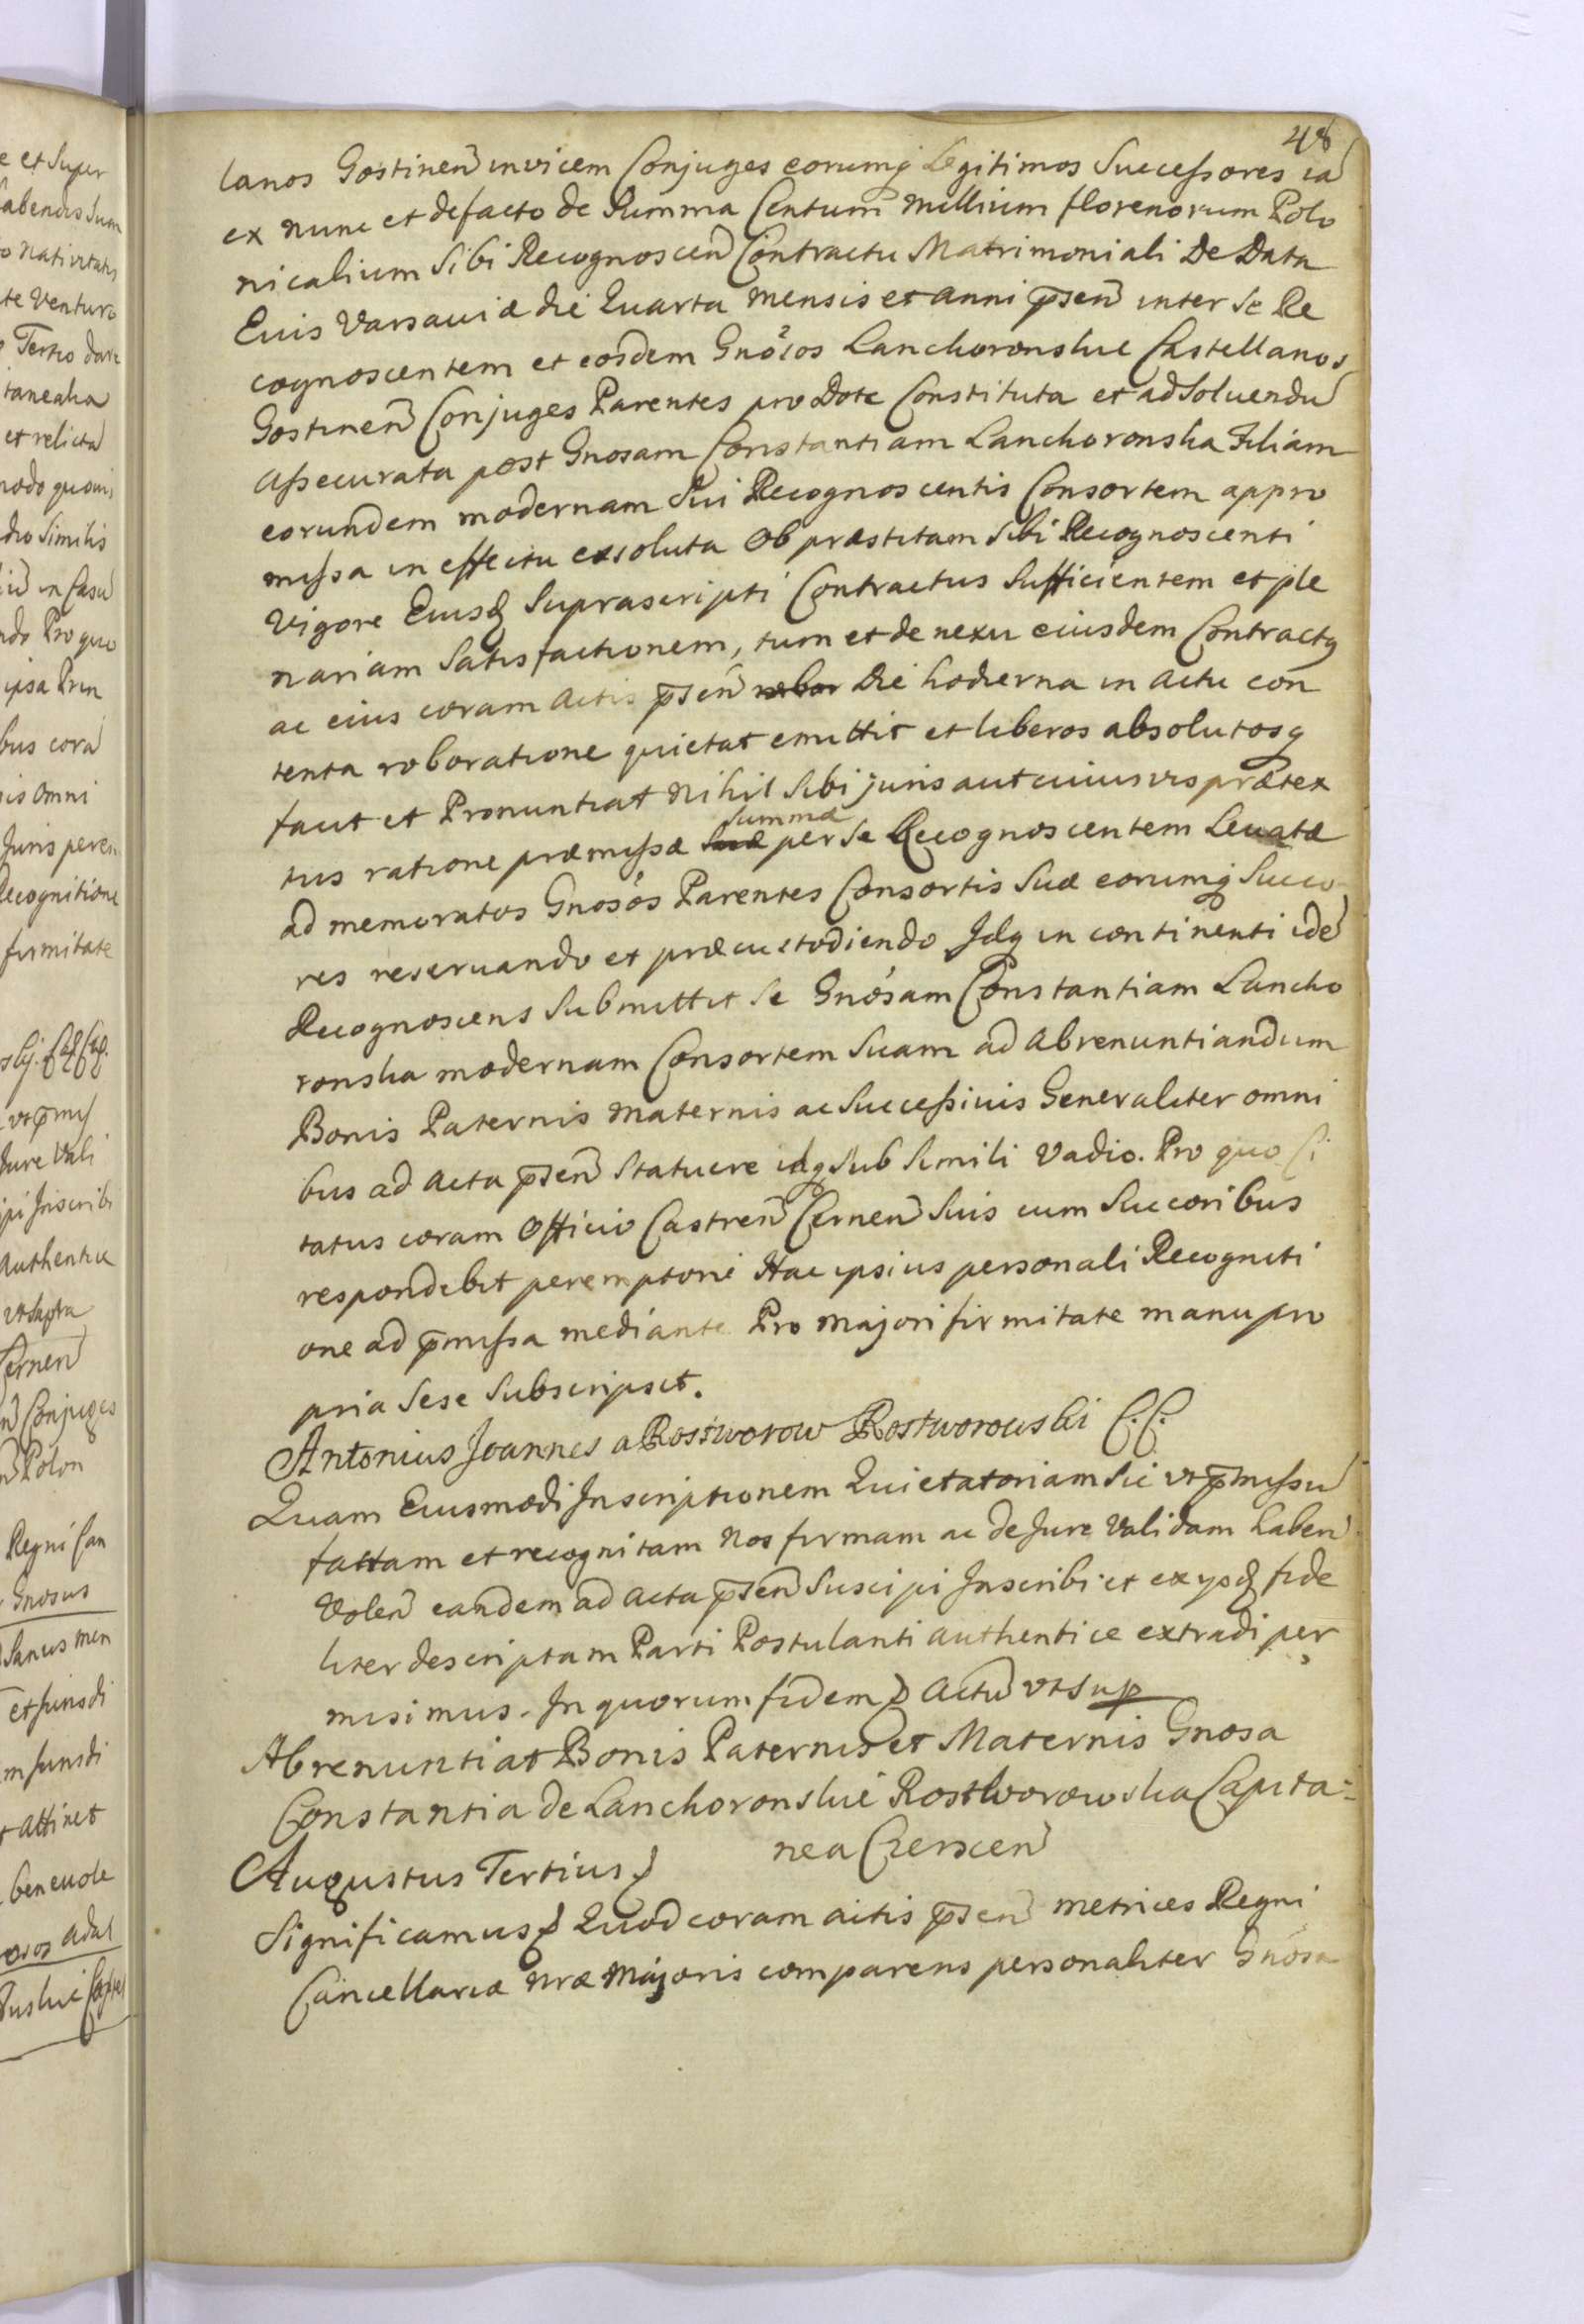 48
lanos Gostinen̄ invicem Conjuges eorumq̨ Legitimos Successores iā
ex nunc et defacto de Summa Centum Millium florenorum Polo
nicalium Sibi Recognoscen̄ Contractu Matrimoniali De Data
Eius Varsaviæ die Quarta Mensis et Anni p̄sen̄ inter Se Re
cognoscentem et eosdem Gnosos Lanchoronskie Castellanos
Gostinen̄ Conjuges Parentes pro Dote Constituta et ad Soluendū
assecurata post Gnosam Constantiam Lanchoronska Filiam
eorundem modernam Sui Recognoscentis Consortem appro
missa in effectu exsoluta Ob præstitam Sibi Recognoscenti
Vigore Eiusd Suprascripti Contractus Sufficientem et ple
nariam Satisfactionem, tum et de nexu eiusdem Contractq
ac eius coram Actis p̄sen̄ die hodierna in Actu con
tenta roboratione quietat emittit et liberos absolutosq
facit et Pronuntiat Nihil Sibi juris aut cuiusvis prætex
tus ratione præmissæ Summæ per Se Recognoscentem Levatæ
ad memoratos Gnosos Parentes Consortis Suæ eorumq̨ Succo
res reservando et præcustodiendo Idq in continenti idē
Recognoscens Submittit Se Gnosam Constantiam Lancho
ronska modernam Consortem Suam ad Abrenuntiandum
Bonis Paternis Maternis ac Successivis Generaliter omni
bus ad Acta p̄sen̄ Statuere idq Sub Simili Vadio. Pro quo Ci
tatus coram Officio Castren̄ Cernen̄ Suis cum Succoribus
respondebit peremptorie Hac ipsius personali Recogniti
one ad p̄missa mediante Pro Majori firmitate manu pro
pria Sese Subscripsit.
Antonius Joannes a Rostworow Rostworowski C.C.
Quam Eiusmodi Inscriptionem Quietatoriam Sic vt p̄missū
factam et recognitam Nos firmam ac de Jure Validam haben̄
Volen̄ eandem ad Acta p̄sen̄ Suscipi Inscribi et ex ysd fide
liter descriptam Parti Postulanti Authentice extradi per
misimus. In quorum fidem Actū vt Sup
Abrenuntiat Bonis Paternis et Maternis Gnosa
Constantia de Lanchoronskie Rostworowska Capita=
nea Czerscen̄
Augustus Tertius
Significamus Quod coram actis p̄sen̄ Metrices Regni
Cancellariæ Nræ Majoris comparens personaliter Gnosa